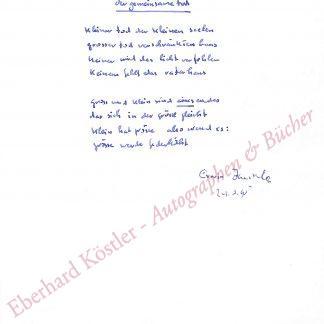 der gemeinsame tod
kleiner tod der kleinen seelen
grosser tod verschränkten baus
keinen wird das licht verfehlen
keinen fehlt das vaterhaus
gross und klein sind eines
das sich in der grösse gleicht
klein hat grösse also wend es:
grösse werde federleicht
Eberhard Köstler - Autographen & Bücher